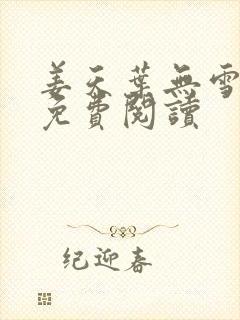 姜天葉無雪
免費閱讀
纪迎春